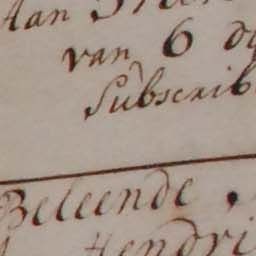 Aan
van 6 d
Subscrib
Beleende
Hendri